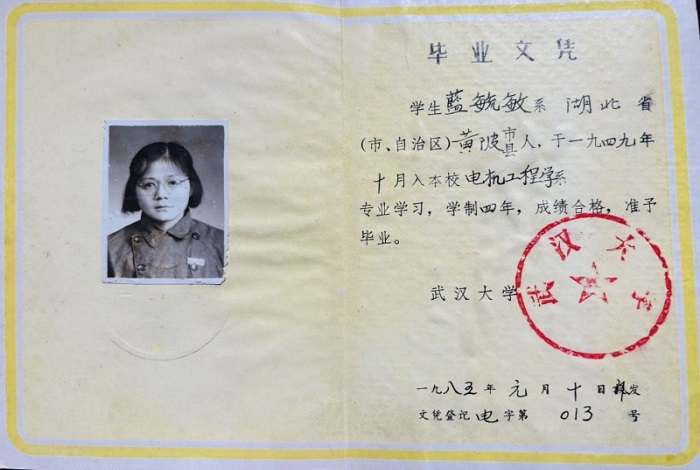 毕业文凭
学生藍毓敏系湖北省
(市、自治区)黄陂市县人，于一九四九年
十月入本校电机工程学系
专业学习，学制四年，成绩合格，准予
毕业。
武汉大学
武汉大学
一九八五年元月十日补发
文凭登记电字第013号